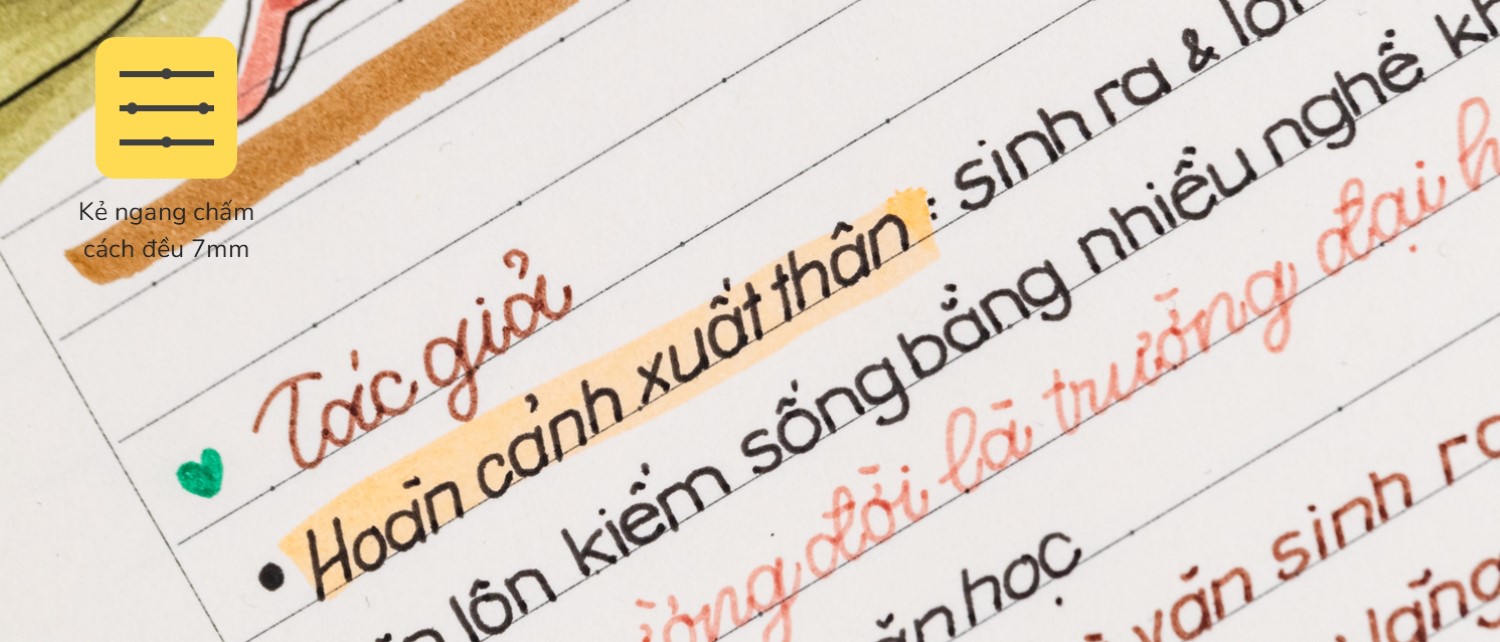 Kẻ ngang chấm
cách đều 7mm
Tác giả
Hoàn cảnh xuất thân : sinh ra &
lộn kiếm sống bằng nhiều nghề
đời là trường đại
học
văn sinh